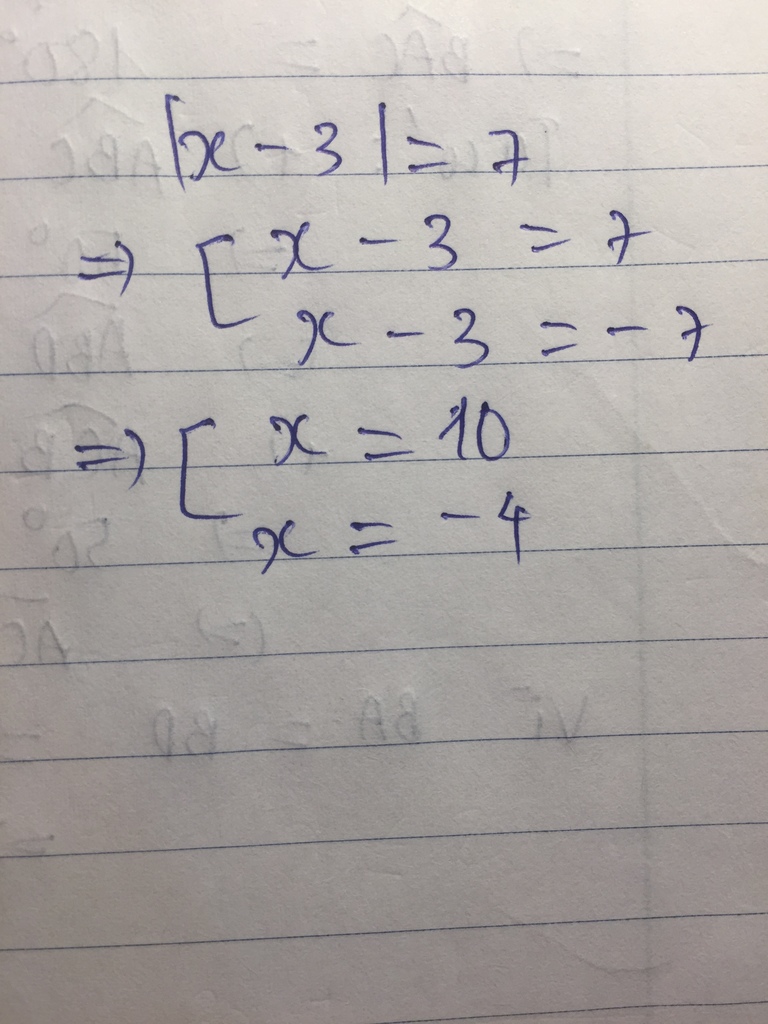 |x - 3| = 7
⇒ [ x - 3 = 7
x - 3 = - 7
⇒ [ x = 10
x = - 4